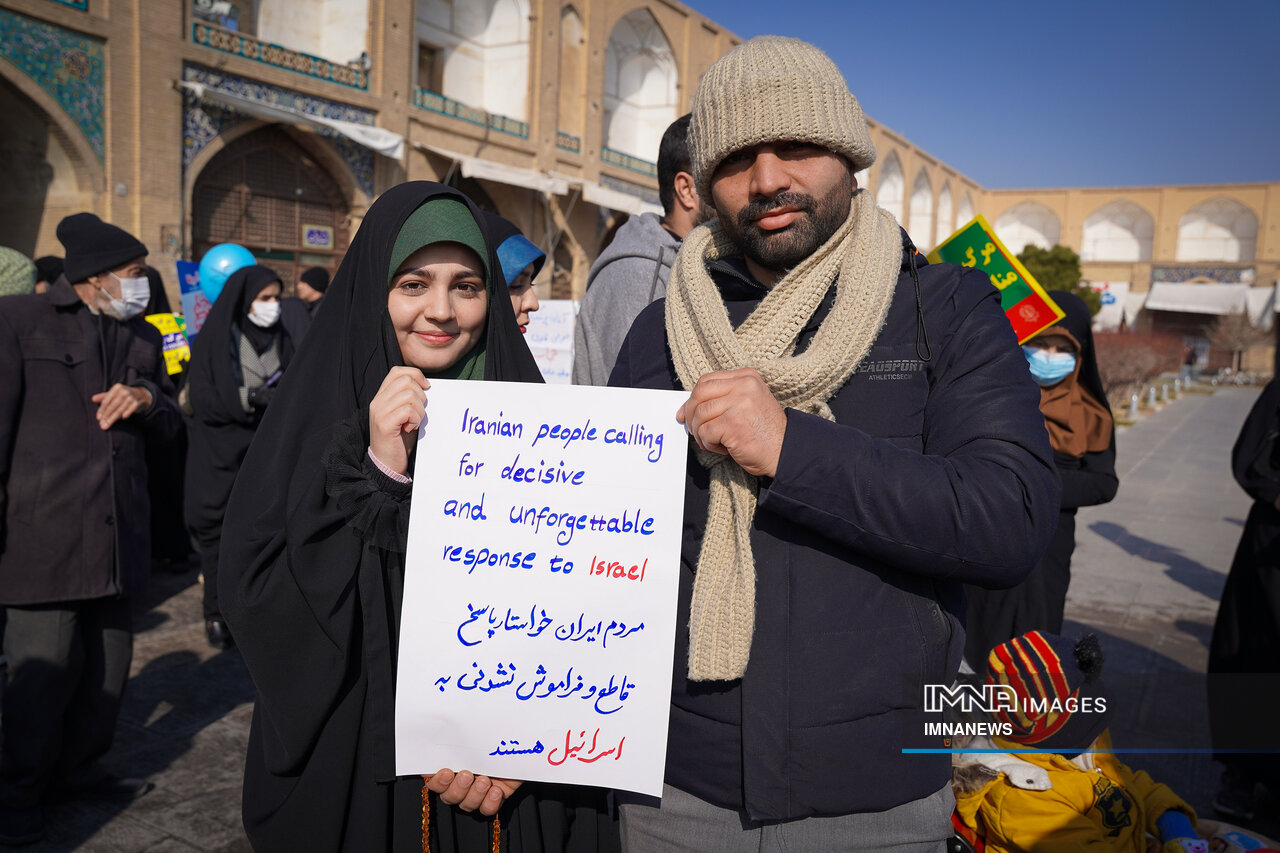 Iranian people calling
for decisive
and unforgettable
response to Israel
مردم ایران خواستار پاسخ
قاطع و فراموش نشدنی به
اسرائیل هستند
مرگ بر
EADSPORT
ATHLETICSEC
IMNA IMAGES
IMNANEWS